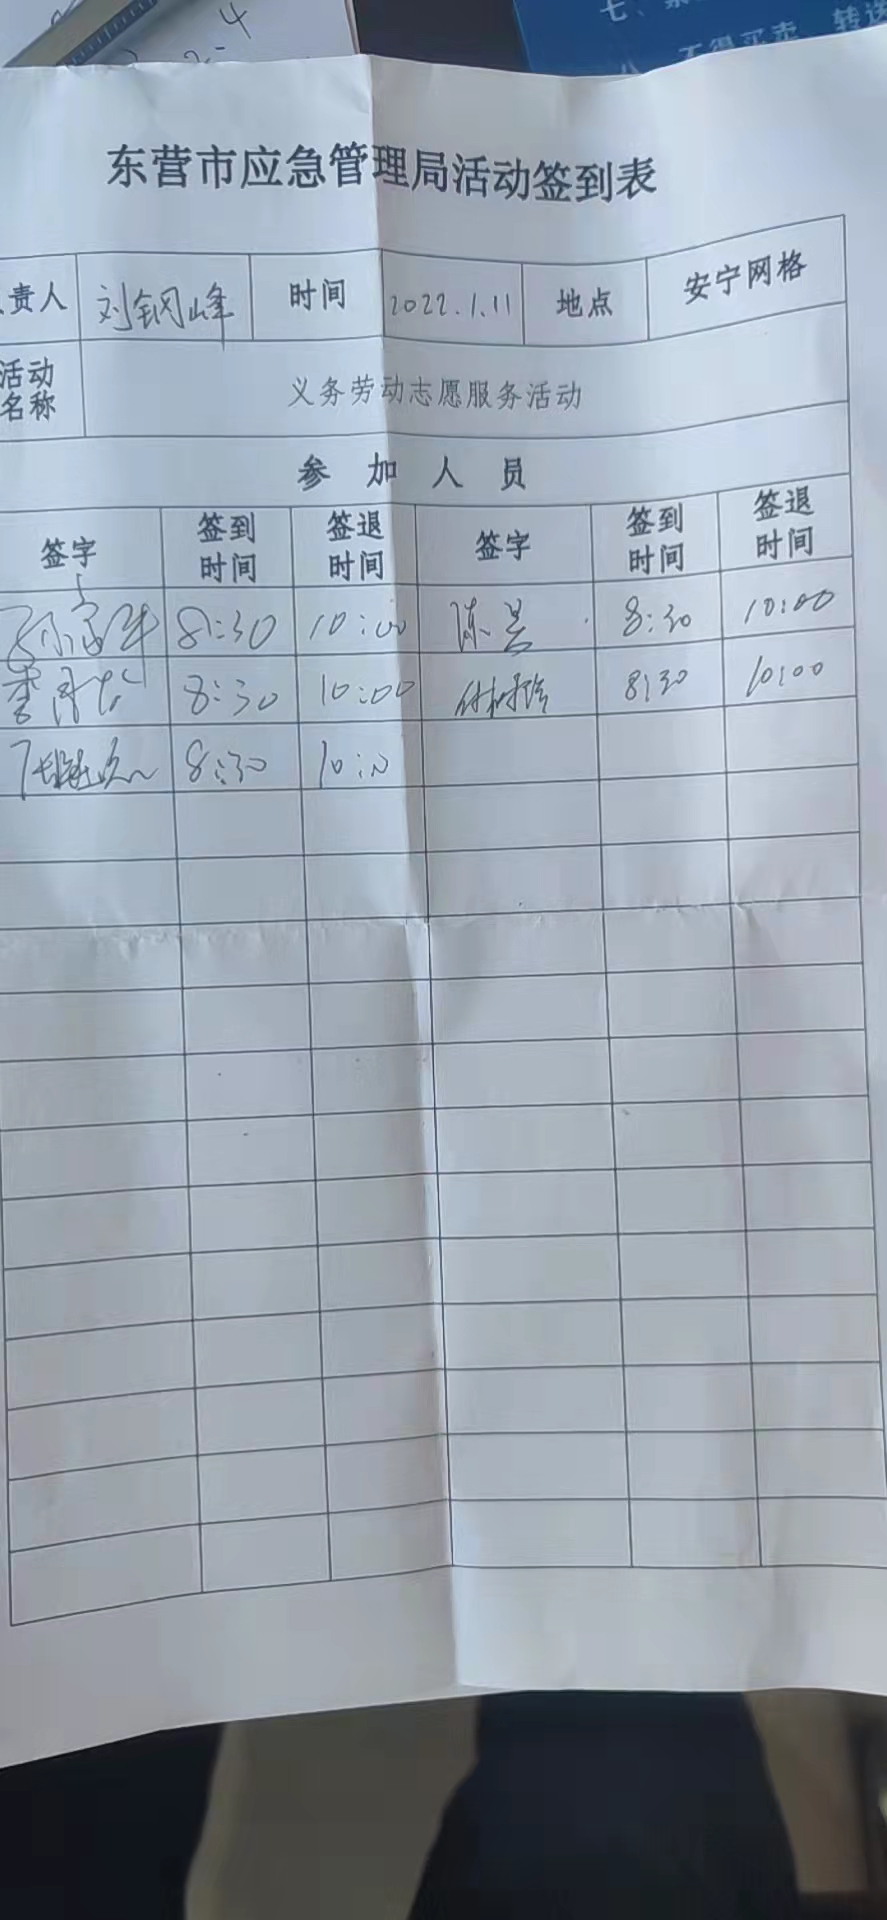 -4
七、
不得买卖、转送
东营市应急管理局活动签到表
责人 刘钢峰 时间 2022.1.11 地点 安宁网格
活动名称 义务劳动志愿服务活动
参加人员
签字 签到时间 签退时间 签字 签到时间 签退时间
8:30 10:00 陈 8:30 10:00
李 8:30 10:00 8:30 10:00
8:30 10:0